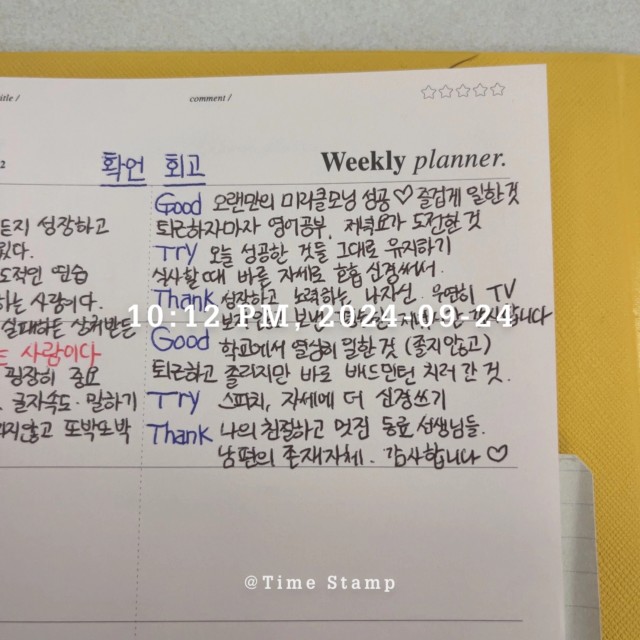 title /
comment /
2
확언 회고
Weekly planner.
Good 오랜만의 미라클모닝 성공♡ 즐겁게 일한 것
든지 성장하고
퇴근하자마자 영어공부, 저녁요가 도전한 것
있다.
Try 오늘 성공한 것들 그대로 유지하기
도적인 연습
식사할 때 바른 자세로 호흡 신경써서.
하는 사람이다.
Thank 성장하고 노력하는 나자신. 우연히 TV
10:12 PM, 2024-09-24
실패하든 상처받든
는 사람이다
Good 학교에서 열심히 일한 것 (졸지않고)
굉장히 중요
퇴근하고 졸리지만 바로 배드민턴 치러 간 것.
글자속도·말하기
Try 스피치, 자세에 더 신경쓰기
지않고 또박또박
Thank 나의 친절하고 멋진 동료 선생님들.
남편의 존재자체. 감사합니다♡
@Time Stamp